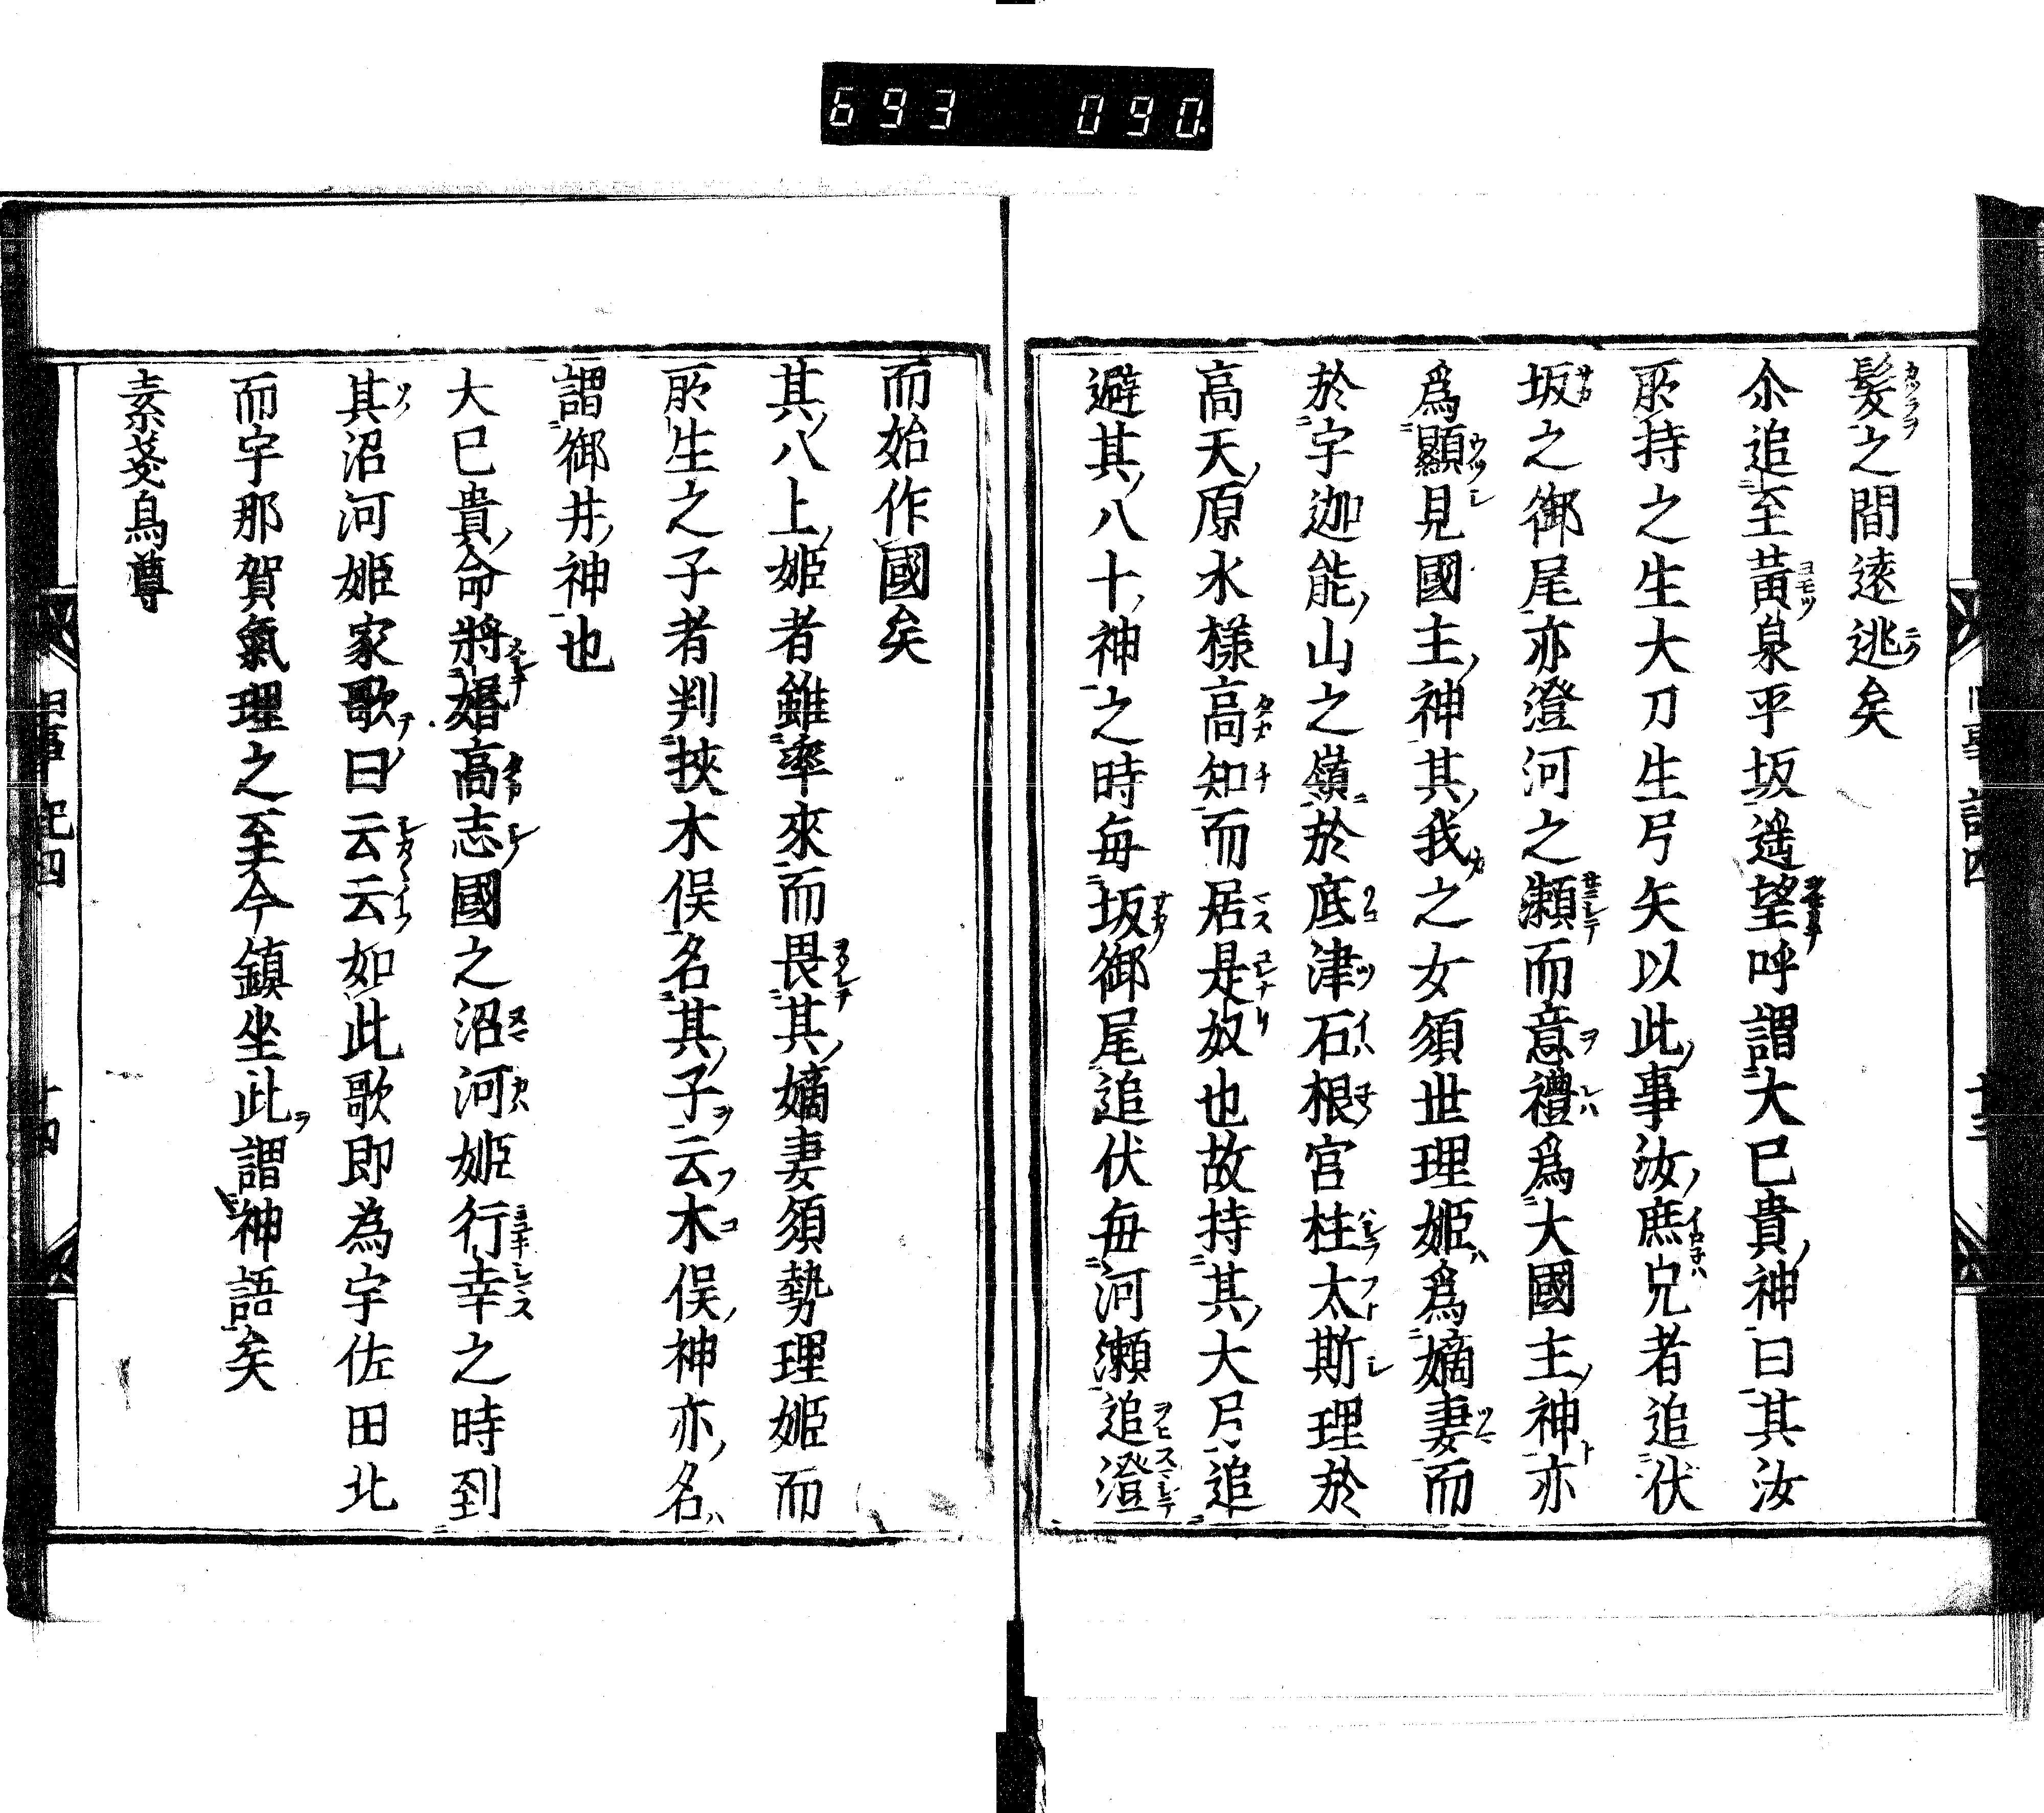 693 090
髮之間遠逃矣
尒追至黄泉平坂遥望呼謂大巳貴神曰其汝
所持之生大刀生弓矢以此事汝庶兄者追伏
坂之御尾亦澄河之瀬而意禮爲大國主神亦
爲顯見國主神其我之女須世理姫爲嫡妻而
於宇迦能山之嶺於底津石根宮柱太斯理於
高天原水様高知而居是奴也故持其大弓追
避其八十神之時毎坂御尾追伏毎河瀬追澄
而始作國矣
其八上姫者雖率來而畏其嫡妻須勢理姫而
所生之子者判挾木俣名其子云木俣神亦名
謂御井神也
大巳貴命將婚高志國之沼河姫行幸之時到
其沼河姫家歌曰云云如此歌即為宇佐田北
而宇那賀氣理之至今鎮坐此謂神語矣
素戔烏尊